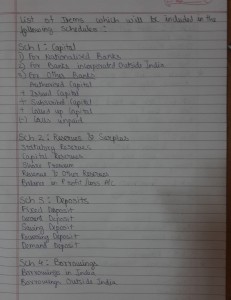 List of Items which will be included in the
following Schedules :
Sch 1 : Capital
1) For Nationalised Banks
2) For Banks incorporated Outside India
3) For Other Banks
Authorised Capital
+ Issued Capital
+ Subscribed Capital
+ Called up Capital
(-) Calls unpaid
Sch 2 : Reserves & Surplus
Statutory Reserves
Capital Reserves
Share Premium
Revenue & Other Reserves
Balance in Profit /loss A/c
Sch 3 : Deposits
Fixed Deposit
Deposit
Saving Deposit
Recurring Deposit
Demand Deposit
Sch 4 : Borrowings
Borrowings in India
Borrowings Outside India